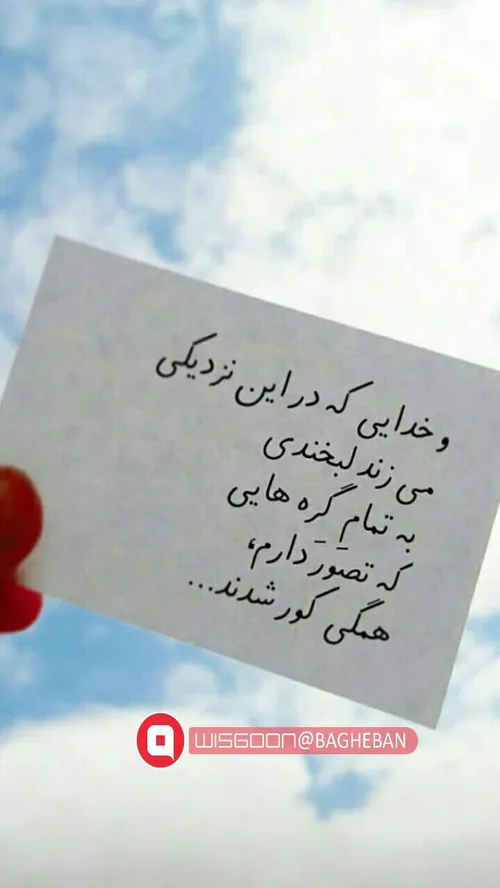 و خدایی که در این نزدیکی
می زند لبخندی
به تمام گره هایی
که تصور دارم،
همگی کور شدند...
WISGOON@BAGHEBAN